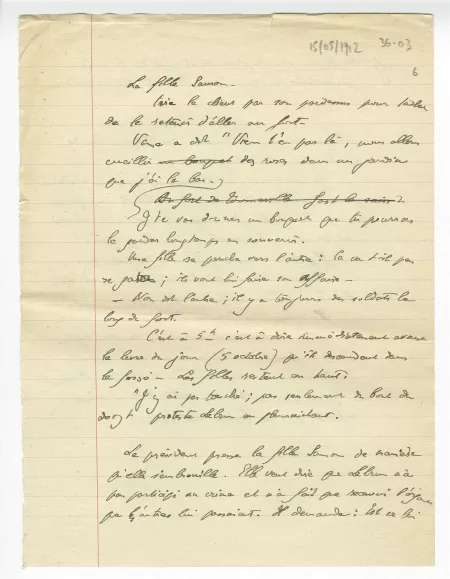 15/05/1912 36-03
6
La fille Samson -
tira le chien par son pardessus pour
de le retenir d'aller au fort -
a dit "Viens t'en par là, nous allons
cueillir un bouquet des roses dans un jardin
que j'ai là bas.
Au fort de
Je te vas donner un bouquet que tu pourras
le garder longtemps en souvenir.
Une fille se pencha vers l'autre : là est-il pas
se ; ils vont lui faire son affaire -
- Non dit l'autre ; il y a toujours des soldats le
long du fort.
C'est à 5h c'est à dire immédiatement avant
le lever du jour (5 octobre) qu'ils descendent dans
le fossé - Les filles restent en haut.
"J'y ai pas touché ; pas seulement du bout du
doigt" proteste en pleurnichant.
Le président presse la fille Samson de manière
qu'elle s'embrouille. Elle veut dire que n'a
pas participé au crime et n'a fait que recevoir l'
que l'autre lui passait. Il demande : Est ce lui